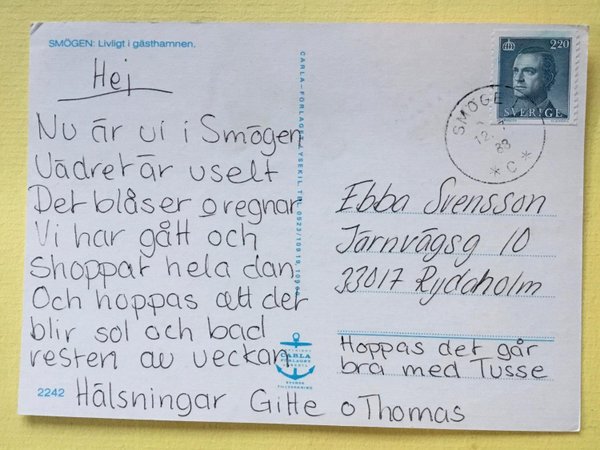 SMÖGEN: Livligt i gästhamnen.
Hej
Nu är vi i Smögen
Vädret är uselt
Det blåser o regnar
Vi har gått och
Shoppat hela dan
Och hoppas att det
blir sol och bad
resten av veckan
Hälsningar Gitte o Thomas
2242
CARLA-FÖRLAGET, LYSEKIL
CARLA
2.20
SVERIGE
SMÖGEN
12
89
* C *
Ebba Svensson
Järnvägsg 10
33017 Rydaholm
Hoppas det går
bra med Tusse